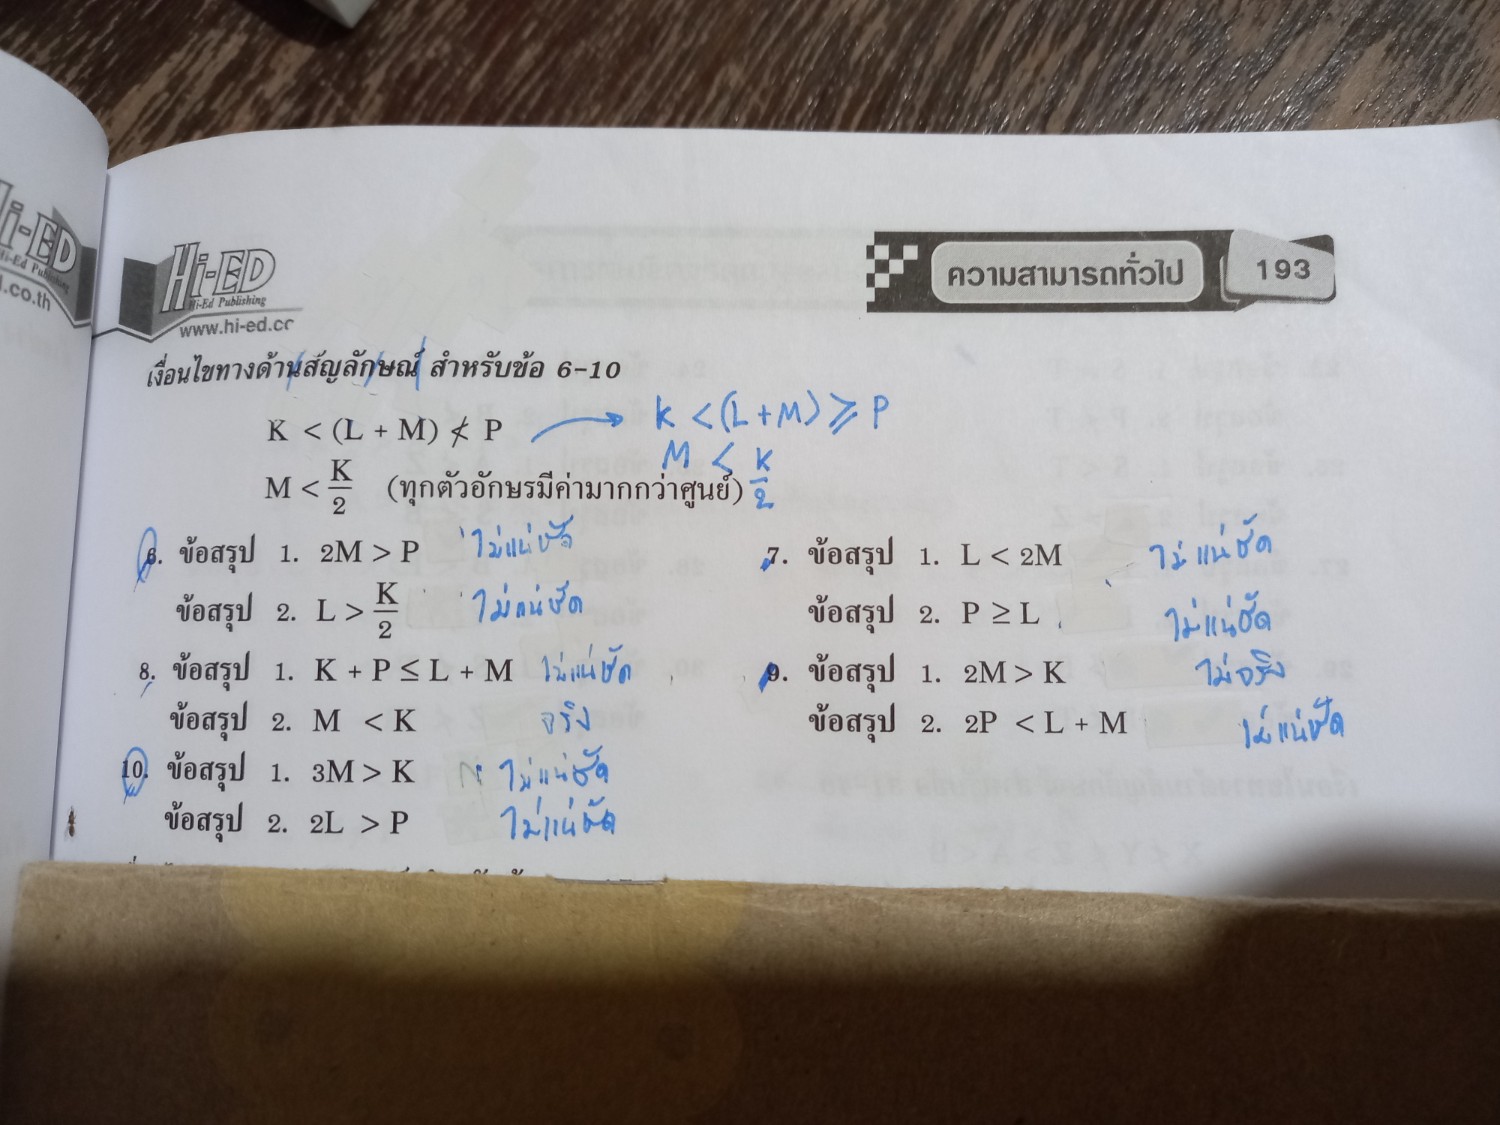 Hi-ED
Hi-Ed Publishing
.co.th
Hi-ED
Hi-Ed Publishing
www.hi-ed.cc
ความสามารถทั่วไป 193
เงื่อนไขทางด้านสัญลักษณ์ สำหรับข้อ 6-10
K < (L + M) ≮ P K < (L + M) ≥ P
M < K/2 (ทุกตัวอักษรมีค่ามากกว่าศูนย์) M < K/2
6. ข้อสรุป 1. 2M > P ไม่แน่ชัด
ข้อสรุป 2. L > K/2 ไม่แน่ชัด
7. ข้อสรุป 1. L < 2M ไม่แน่ชัด
ข้อสรุป 2. P ≥ L ไม่แน่ชัด
8. ข้อสรุป 1. K + P ≤ L + M ไม่แน่ชัด
ข้อสรุป 2. M < K จริง
9. ข้อสรุป 1. 2M > K ไม่จริง
ข้อสรุป 2. 2P < L + M ไม่แน่ชัด
10. ข้อสรุป 1. 3M > K ไม่แน่ชัด
ข้อสรุป 2. 2L > P ไม่แน่ชัด